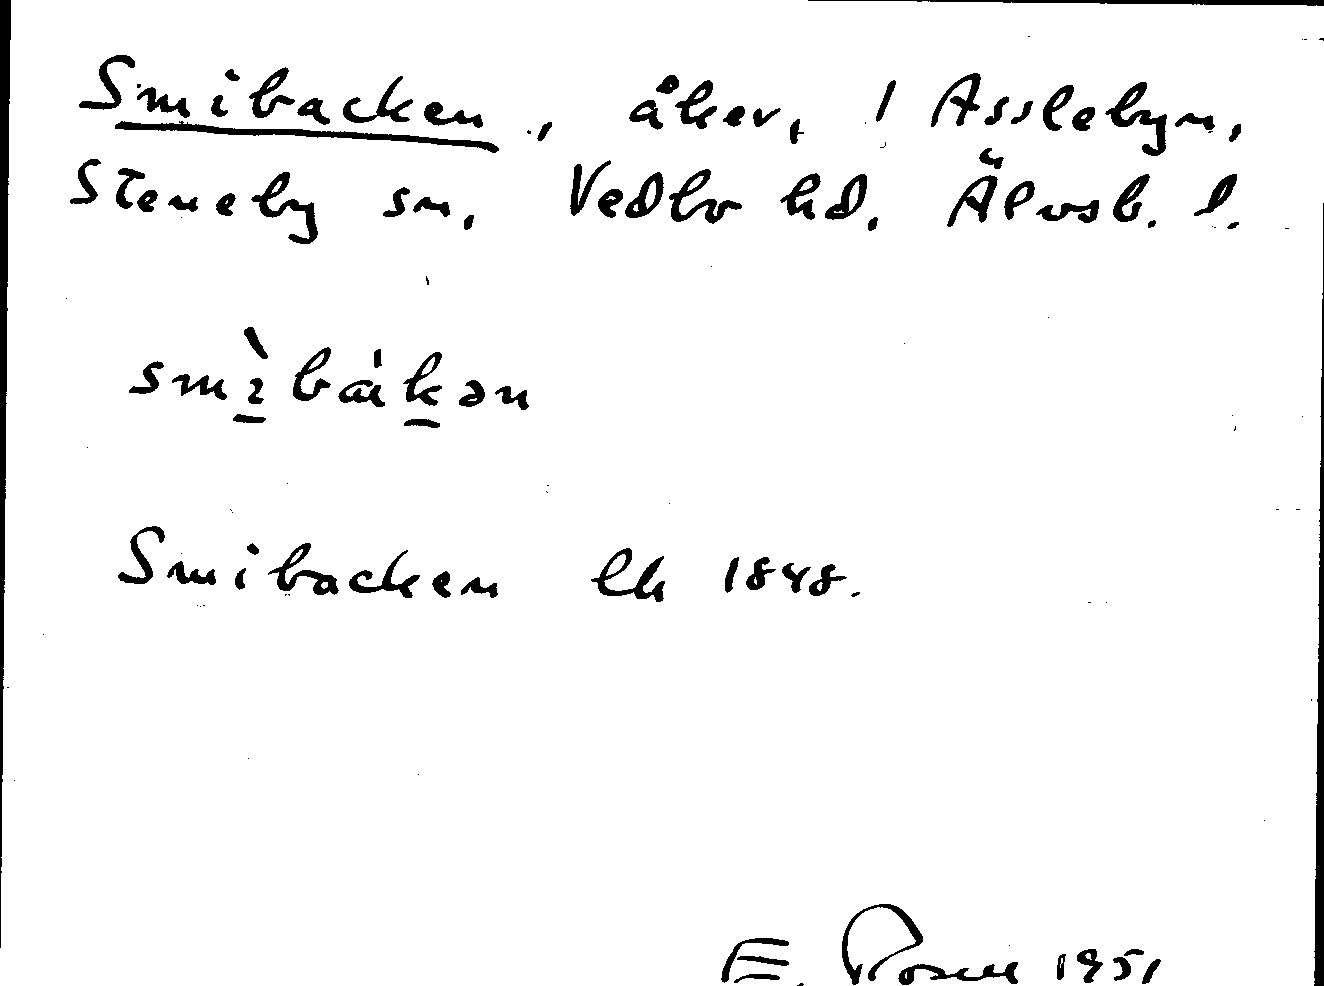 Smibacken, åker, 1 Asslebyn,
Steneby sn, Vedbo hd. Älvsb. l.
smìbákən
Smibacken lk 1848.
E. Rosell 1951